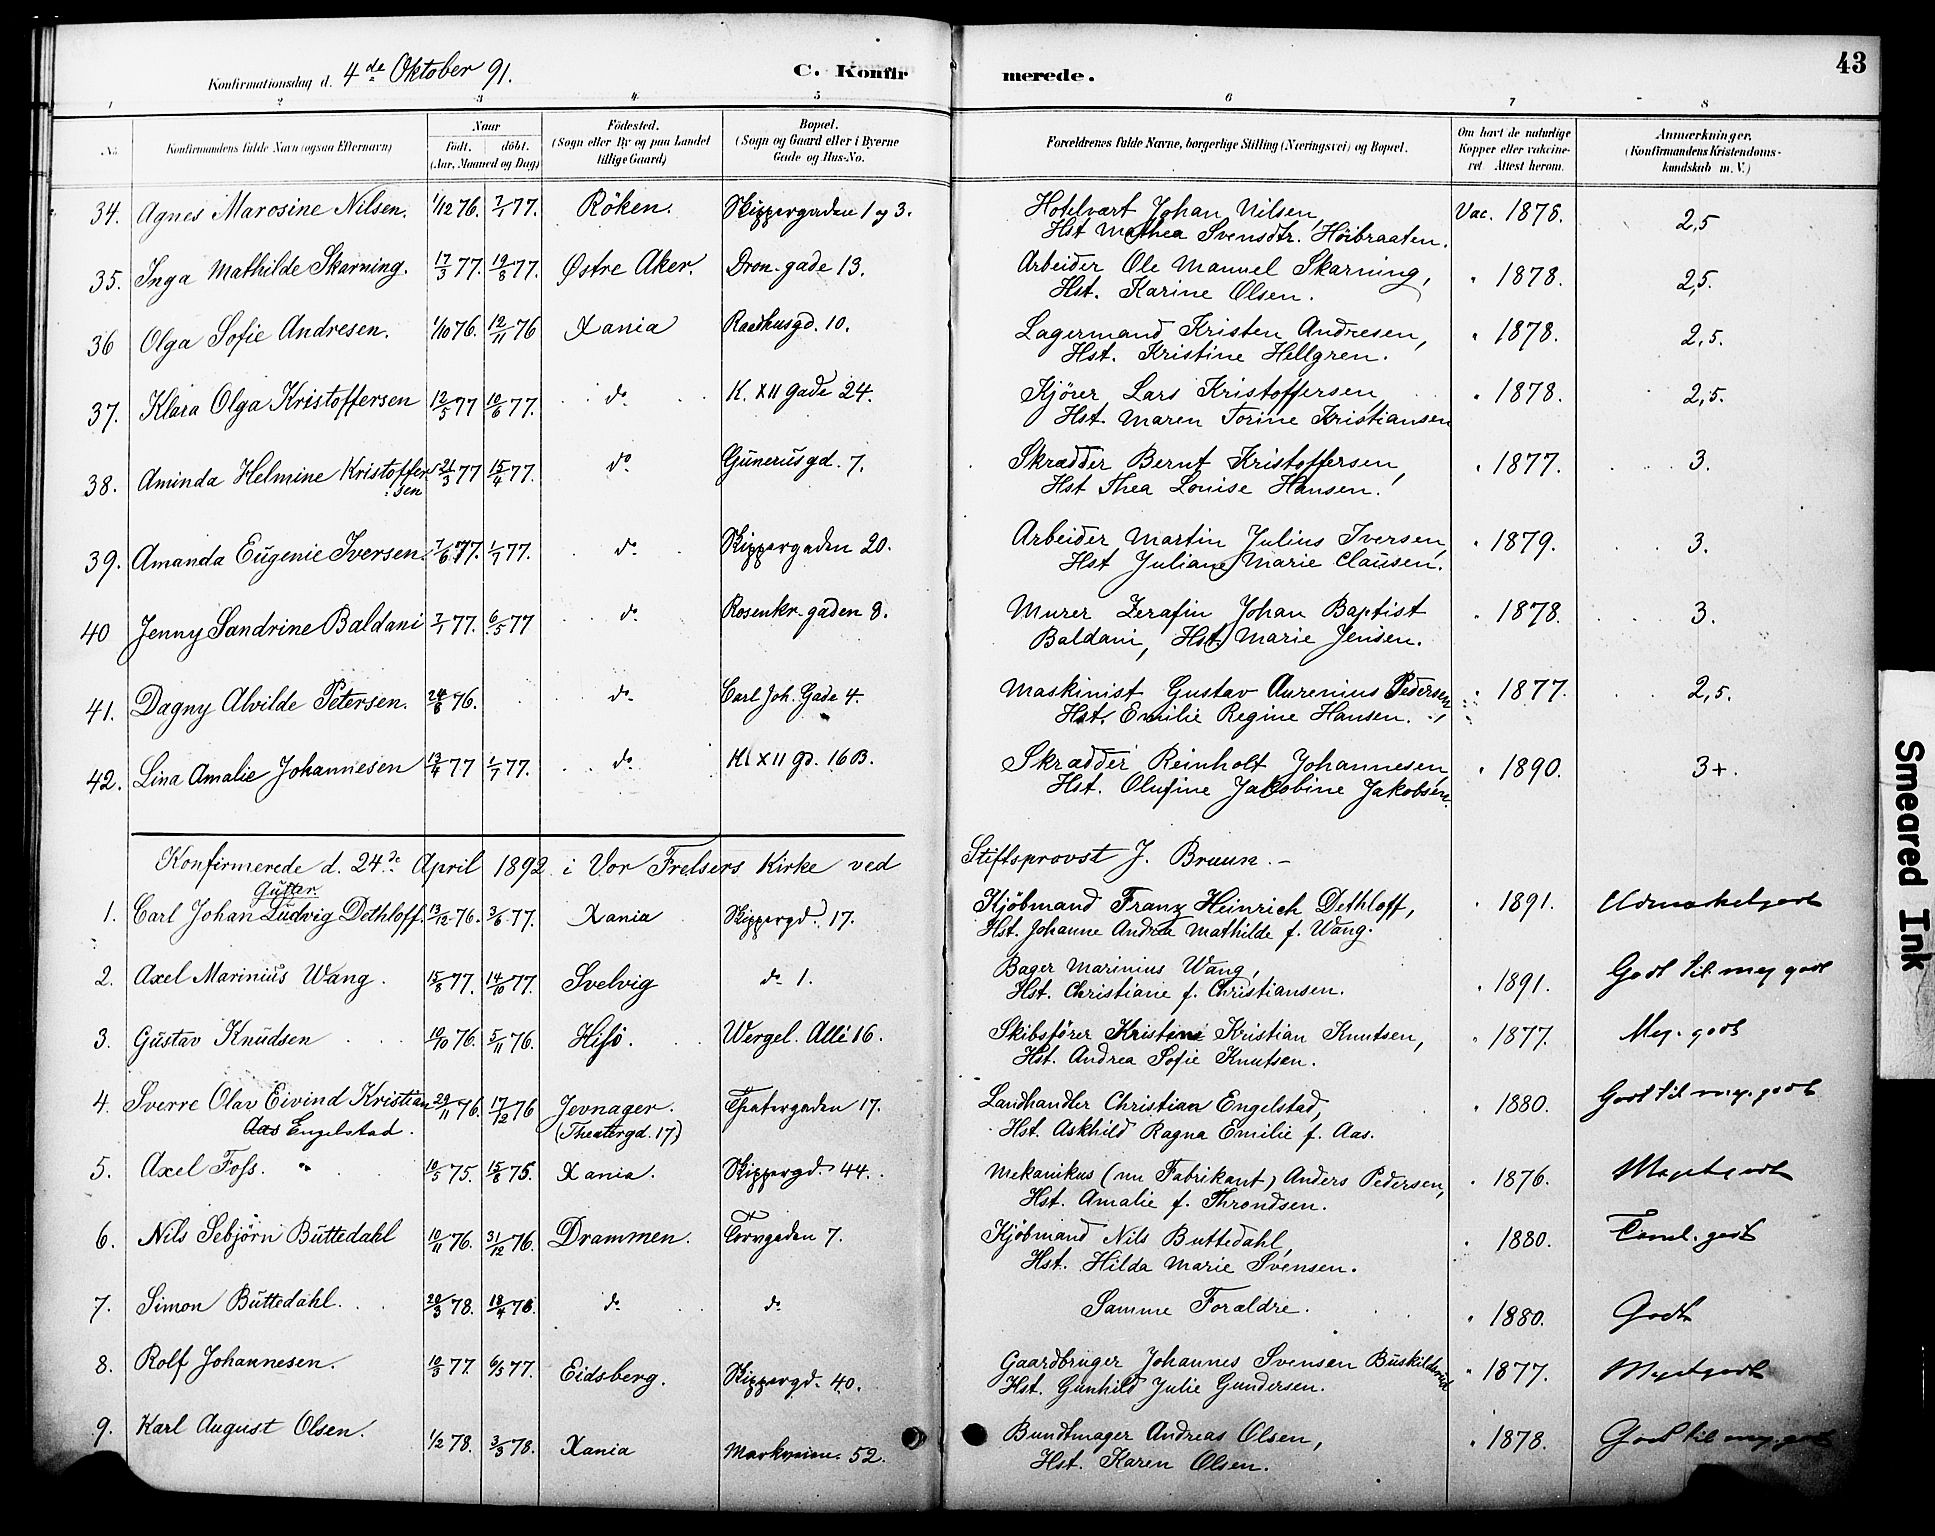 Konfirmationsdag d. 4de Oktober 91. C. Konfirmerede. 43
1 2 3 4. 5 6 7 8
No. Konfirmandens fulde Navn (ogsaa Efternavn) Naar Födt. döbt. (Aar, Maaned og Dag) Födested. (Sogn eller By og paa Landet tillige Gaard) Bopæl. (Sogn og Gaard eller i Byerne Gade og Hus-No. Forældrenes fulde Navne, borgerlige Stilling (Næringsvei) og Bopæl. Om havt de naturlige Kopper eller vakcineret. Attest herom. Anmærkninger. (Konfirmandens Kristendomskundskab m. V.)
34. Agnes Marosine Nilsen. 1/12 76. 7/1 77. Röken. Skippergaden 1 og 3. Hotelvært Johan Nilsen, Vac. 1878. 2,5
Hst Mathea Svensdtr. Höibraaten.
35. Inga Mathilde Skarning. 17/3 77. 19/8 77. Østre Aker. Dron. gade 13. Arbeider Ole Manuel Skarning, " 1878. 2,5.
Hst. Karine Olsen.
36 Olga Sofie Andresen. 1/10 76. 12/11 76 Xania Raadhusgd. 10. Lagermand Kristen Andresen, " 1878. 2,5.
Hst. Kristine Hellgren.
37. Klara Olga Kristoffersen 12/5 77 10/6 77. do K. XII Gade 24. Kjörer Lars Kristoffersen, " 1878. 2,5.
Hst. Maren Torine Kristiansen
38. Aminda Helmine Kristoffersen 21/3 77 15/4 77. do Gunerusgd. 7. Skrædder Bernt Kristoffersen, " 1877. 3.
Hst Thea Louise Hansen.
39. Amanda Eugenie Iversen. 7/6 77. 1/7 77. do Skippergaden 20. Arbeider Martin Julius Iversen, " 1879. 3.
Hst Juliane Marie Clausen.
40 Jenny Sandrine Baldani 7/1 77. 6/5 77 do Rosenkr. gaden 8. Murer Zerafin Johan Baptist " 1878. 3.
Baldani, Hst. Marie Jensen.
41. Dagny Alvilde Petersen. 24/8 76. do Carl Joh. Gade 4. Maskinist Gustav Aurenius Pedersen " 1877. 2,5.
Hst. Emilie Regine Hansen.
42. Lina Amalie Johannesen 13/4 77 1/7 77. do Kl XII gd. 16 B. Skrædder Reinholt Johannesen, " 1890. 3+.
Hst. Olufine Jakobine Jakobsen.
Konfirmerede d. 24de April 1892 i Vor Frelsers Kirke ved Stiftsprovst J. Bruun. –
1. Carl Johan Ludvig Dethloff. 13/12 76. 3/6 77. Xania Skippergd. 17. Kjöbmand Franz Heinrich Dethloff, " 1891. Udmærketgodt
Hst. Johanne Andrea Mathilde f. Wang.
2. Axel Marinius Wang. 15/8 77. 14/10 77. Svelvig do 1. Bager Marinius Wang, " 1891. Godt til meg godt
Hst. Christiane f. Christiansen.
3. Gustav Knudsen 19/10 76. 5/11 76. Hisö. Wergel. Allé 16. Skibsförer Kristian Knutsen, " 1877. Meg. godt
Hst. Andrea Sofie Knutsen.
4. Sverre Olav Eivind Kristian 29/11 76. 17/12 76 Jevnager. Theatergaden 17. Landhandler Christian Engelstad, " 1880. Godt til meg. godt
Aas Engelstad. (Theatergd. 17) Hst. Askhild Ragna Emilie f. Aas.
5. Axel Foss. 10/5 75. 15/8 75. Xania. Skippergd. 44. Mekanikus (nu Fabrikant) Anders Pedersen, " 1876. Megetgodt
Hst. Amalie f. Throndsen.
6. Nils Sebjörn Buttedahl 10/11 76. 31/12 76. Drammen. Torvgaden 7. Kjöbmand Nils Buttedahl, " 1880. Teml. godt
Hst. Hilda Marie Svensen.
7. Simon Buttedahl. 20/3 78. 19/4 78. do do Samme Forældre. " 1880. Godt
8. Rolf Johannesen. 10/3 77. 6/5 77. Eidsberg. Skippergd. 40. Gaardbruger Johannes Svensen Buskilderud " 1877. Megetgodt
Hst. Gunhild Julie Gundersen.
9. Karl August Olsen. 1/2 78. 3/3 78. Xania Markveien. 52. Bundtmager Andreas Olsen, " 1878. Godt til meg. godt
Hst. Karen Olsen.
Smeared Ink